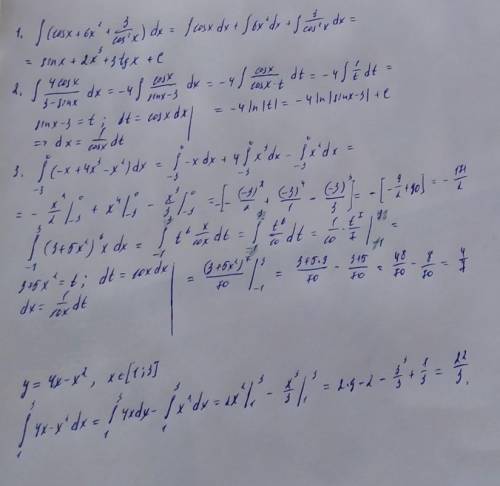 1. ∫(cosx + 6x² + 3/cos²x) dx = ∫cosx dx + ∫6x² dx + ∫3/cos²x dx =
= sinx + 2x³ + 3tgx + C
2. ∫ 4cosx/(3-sinx) dx = -4∫ cosx/(sinx-3) dx = -4∫ cosx/(cosx·t) dt = -4∫ 1/t dt =
sinx-3 = t; dt = cosx dx
= -4 ln|t| = -4 ln|sinx-3| + C
=> dx = 1/cosx dt
3. ∫₋₃⁰ (-x + 4x³ - x²) dx = ∫₋₃⁰ -x dx + 4∫₋₃⁰ x³ dx - ∫₋₃⁰ x² dx =
= - x²/2 |₋₃⁰ + x⁴ |₋₃⁰ - x³/3 |₋₃⁰ = -[- (-3)²/2 + (-3)⁴/1 - (-3)³/3] = -[-9/2 + 90] = - 171/2
∫₋₁ (3+5x²)⁶ x dx = ∫ t⁶ x/10x dt = ∫ t⁶/10 dt = 1/10 · t⁷/7 | =
3+5x² = t; dt = 10x dx
dx = 1/10x dt
= (3+5x²)⁷/70 |₋₁³ = (3+5·9)/70 - (3+5)/70 = 48/70 - 8/70 = 4/7
y = 4x - x², x∈[1;3]
∫₁³ 4x - x² dx = ∫₁³ 4x dx - ∫₁³ x² dx = 2x² |₁³ - x³/3 |₁³ = 2·9 - 2 - 3³/3 + 1/3 = 22/3.